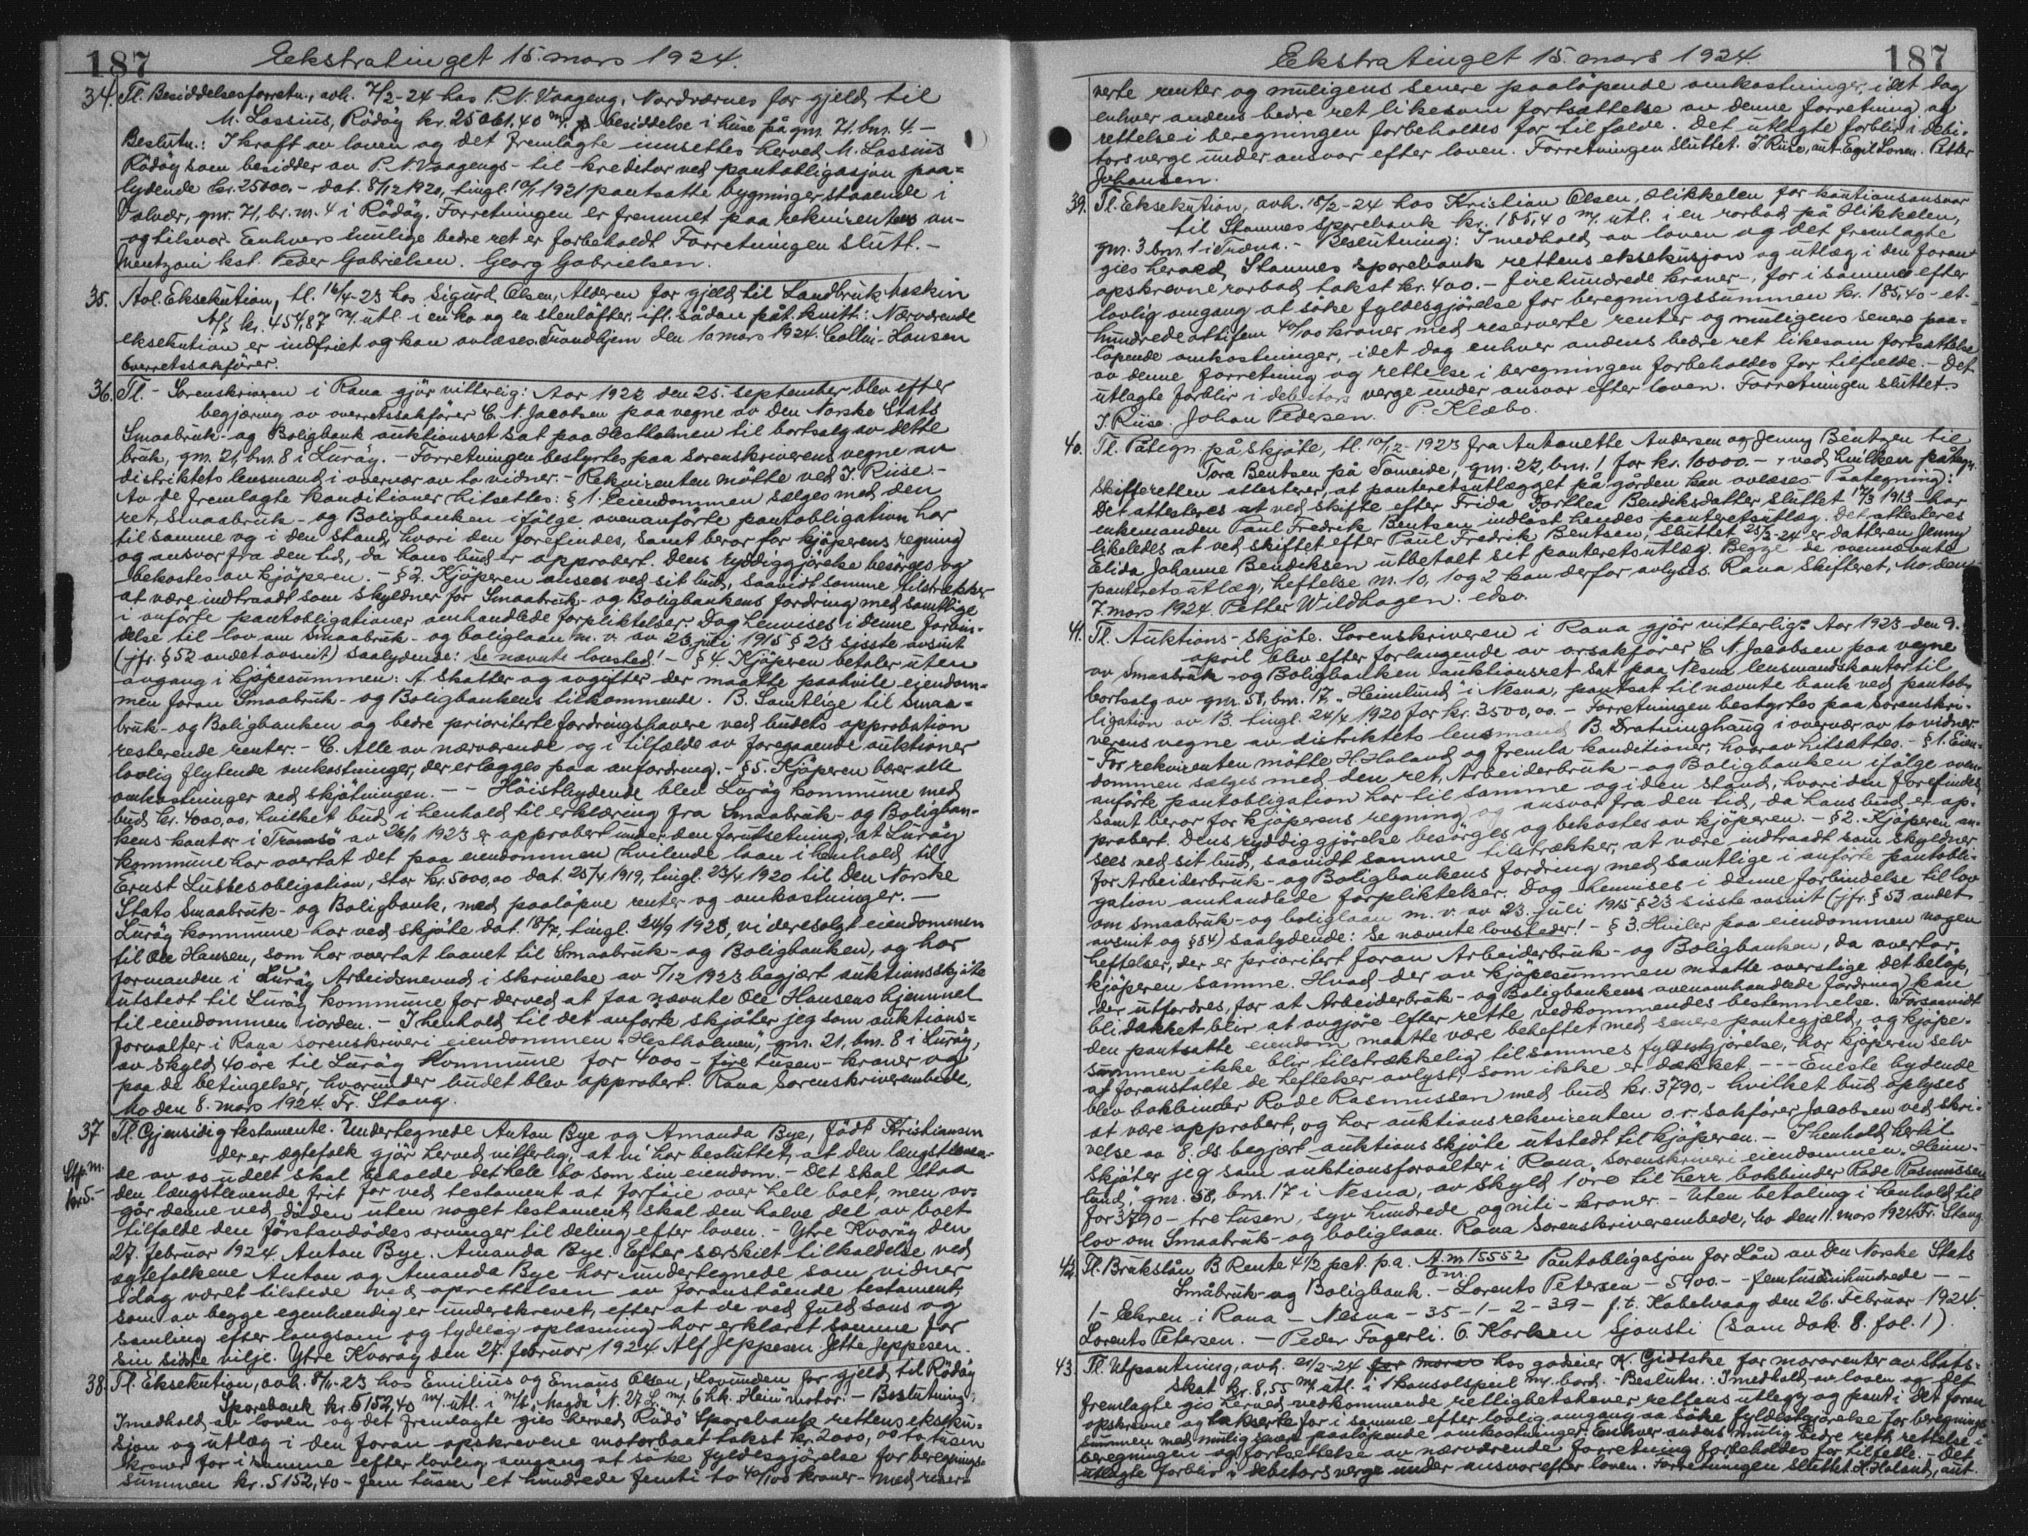 187
Ekstratinget 15. mars 1924.
34. Tl. Besiddelsesforretn., avh. 7/2-24 hos P. N. Vaageng, Nordværnes for gjeld til
M. Lossius, Rödöy kr. 25061.40 m/ besiddelse i huse på gnr. 71. bnr. 4. -
Beslutn.: I kraft av loven og det fremlagte innsættes herved M. Lossius
Rödöy som besidder av P. N. Vaagengs - til kreditor ved pantobligasjon paa=
lydende kr. 25000.- dat. 8/12 1920, tingl. 10/1 1921 pantsatte bygninger staaende i
Valvær, gnr. 71, br. nr. 4 i Rödöy. Forretningen er fremmet paa rekvirentens an-
og tilsvar. Enhvers mulige bedre ret er forbeholdt. Forretningen slutt. -
Mentzoni kst. Peder Gabrielsen. Georg Gabrielsen.
35. Avl. Eksekution, tl. 16/4-23 hos Sigurd Olsen, Alderen for gjeld til Landbruk Maskin
A/S kr. 454,87 m/ utl. i en ko og en stenløfter, ifl. sådan påt. kvitt: Nærværende
eksekution er indfriet og kan avlæses. Trondhjem den 10 mars 1924. Collin-Hansen
overretssakfører.
36. Tl. - Sorenskriveren i Rana gjör vitterlig: Aar 1922 den 25. september blev efter
begjæring av overretssakförer C. N. Jacobsen paa vegne av Den Norske Stats
Smaabruk- og Boligbank auktionsret sat paa Hestholmen til bortsalg av dette
bruk, gnr. 21, bnr. 8 i Luröy. - Forretningen bestyrtes paa sorenskriverens vegne av
distriktets lensmand i overvær av to vidner. - Rekvirenten mötte ved J. Riise. -
Av de fremlagte konditioner hitsættes: § 1. Eiendommen sælges med den
ret, Smaabruk- og Boligbanken ifölge ovenanförte pantobligation har
til samme og i den stand, hvori den forefindes, samt beror for kjöperens regning
og ansvar fra den tid, da hans bud er approbert. Dens ryddiggjörelse besörges og
bekostes av kjöperen. - § 2. Kjöperen ansees ved sit bud, saavidt samme tilstrækker
at være indtraadt som skyldner for Smaabruk- og Boligbankens fordring med samtlige
i anförte pantobligationer omhandlede forpliktelser. Dog henvises i denne forbin-
delse til lov om Smaabruk- og boliglaan m. v. av 23 juli 1915 § 23 sisste avsnit
(jfr. § 52 andet avsnit) saalydende: Se nævnte lovsted! - § 4. Kjöperen betaler uten
avgang i kjöpesummen: A. Skatter og avgifter der maatte paahvile eiendom-
men foran Smaabruk- og Boligbankens tilkommende. B. Samtlige til Smaa=
bruk- og Boligbanken og bedre prioriterte fordringshavere ved budets approbation
resterende renter. - C. Alle av nærværende og i tilfælde av foregaaende auktioner
lovlig flytende omkostninger, der erlægges paa anfordring. - § 5. Kjöperen bærer alle
omkostninger ved skjötningen. - - Höistbydende blev Luröy kommune med
bud kr. 4000,00, hvilket bud i henhold til erklæring fra Smaabruk- og Boligban-
kens kontor i Tromsö av 26/1 1923 er approbert under den forutsetning, at Luröy
kommune har overtat det paa eiendommen hvilende laan i henhold til
Ernst Lustes obligation, stor kr. 5000,00 dat. 25/4 1919, tingl. 23/4 1920 til Den Norske
Stats Smaabruk- og Boligbank, med paalöpne renter og omkostninger. -
Luröy kommune har ved skjöte dat. 18/7, tingl. 24/9 1923, videresolgt eiendommen
til Ole Hansen, som har overtat laanet til Smaabruk- og Boligbanken, og har
formanden i Luröy Arbeidsnevnd i skrivelse av 5/12 1923 begjært auktionsskjöte
utstedt til Luröy kommune for derved at faa nævnte Ole Hansens hjemmel
til eiendommen iorden. - I henhold til det anforte skjöter jeg som auktions=
forvalter i Rana sorenskriveri eiendommen "Hestholmen," gnr. 21, bnr. 8 i Luröy,
av skyld 40 öre til Luröy Kommune for 4000 - fire tusen - kroner og
paa de betingelser, hvorunder budet blev approbert. Rana Sorenskriverembede,
Mo den 8. mars 1924. Fr. Stang.
37 Tl. Gjensidig testamente. Undertegnede Anton Bye og Amanda Bye, födt Kristiansen
Stp. m. kr. 5.-
der er ægtefolk gjör herved vitterlig, at vi har besluttet, at den længstleven-
de av os udelt skal beholde det hele bo som sin eiendom. - Det skal staa
den længstlevende frit for ved testament at forföie over hele boet, men av-
gör denne ved döden uten noget testament, skal den halve del av boet
tilfalde den förstavdödes arvinger til deling efter loven. - Ytre Kvaröy den
27. februar 1924 Anton Bye. Amanda Bye. Efter særskiet tilkaldelse ved
ægtefolkene Anton og Amanda Bye har undertegnede som vidner
idag været tilstede ved oprettelsen av foranstående testament,
som av begge egenhændig er underskrevet, efter at de ved fuld sans og
samling efter langsom og tydelig oplæsning har erklæret samme for
sin sidste vilje. Ytre Kvaröy den 27. februar 1924 Alf Jeppesen. Jette Jeppesen.
38. Tl. Eksekution, avh. 8/11-23 hos Emilius og Emaus Olsen, Lovunden for gjeld til Rödöy
Sparebank kr. 5152,40 m/ utl. i m/b. "Magda" N. 27 L. m/ 6 hk. Heim motor. - Beslutning:
I medhold av loven og det fremlagte gies herved Rödö Sparebank rettens eksku-
sjon og utlæg i den foran opskrevene motorbaat takst kr. 2000,00 to tusen
kroner for i samme efter lovlig omgang at söke fyldesgjörelse for beregnings-
summen kr. 5152,40 - fem tusen et hundrede femti to 40/100 kroner - med reser-
187
Ekstratinget 15. mars 1924
verte renter og muligens senere paalöpende omkostninger, idet dog
enhver andens bedre ret likesom fortsættelse av denne forretning og
rettelse i beregningen forbeholdes for tilfælde. Det utlagte forblir i debi-
tors verge under ansvar efter loven. Forretningen sluttet. J. Riise, aut. Egil Loven. Petter
Johansen.
39. Tl. Eksekution, avh. 15/2-24 hos Kristian Olsen, Hikkelen for kautionsansvar
til Stannes Sparebank kr. 185,40 m/ utl. i en rorbod på Hikkelen,
gnr. 3 bnr. 1 i Træna. - Beslutning: I medhold av loven og det fremlagte
gies herved Stannes sparebank rettens eksekusjon og utlæg i den foran
opskrevne rorbod takst kr. 400. - firehundrede kroner -, for i samme efter
lovlig omgang at söke fyldesgjörelse for beregningssummen kr. 185,40 - et-
hundredeottifem 40/100 kroner med reserverte renter og muligens senere paa-
löpende omkostninger, idet dog enhver andens bedre ret likesom fortsættelse
av denne forretning og rettelse i beregningen forbeholdes for tilfælde. Det
utlagte forblir i debitors verge under ansvar efter loven. Forretningen sluttet.
J. Riise. Johan Pedersen. P. Klæbo.
40. Tl. Påtegn. på skjöte, tl. 10/12-1923 fra Antonette Andersen og Jenny Bentzen til
Tora Bentsen på Tomeide, gnr. 22, bnr. 1 for kr. 10000. - ved hvilken påtegn.
skifteretten attesterer, at panteretsutlægget på gården kan avlæses. Paategning:
Det attesteres at ved skifte efter Frida Forthea Bendiksdatter sluttet 17/3 1913 har
enkemanden Paul Fredrik Bentsen indlöst hendes panteretsutlæg. Det attesteres
likeledes at ved skiftet efter Paul Fredrik Bentsen, sluttet 25/2-24 er datteren Jenny
Elida Johanne Bendiksen utbetalt sit panteretsutlæg. Begge de ovennævnte
panteretsutlæg, heftelse nr. 10, 1 og 2 kan derfor avlyses. Rana Skifteret, Mo. den
7. mars 1924. Petter Wildhagen. edsv.
41. Tl. Auktions-skjöte. Sorenskriveren i Rana gjör vitterlig: Aar 1923 den 9.
april blev efter forlangende av orsakförer C. N. Jacobsen paa vegne
av Smaabruk- og Boligbanken auktionsret sat paa Nesna lensmandskontor til
bortsalg av gnr. 58, bnr. 17 "Heimlund" i Nesna, pantsat til nævnte bank ved pantob-
ligation av 13 tingl. 24/4 1920 for kr. 3500,00. - Forretningen bestyrtes paa sorenskri-
verens vegne av distriktets lensmand B. Dratninghaug i overvær av to vidner.
- For rekvirenten mötte H. Holand og fremla konditioner, hvorav hitsættes. - § 1. Eien-
dommen sælges med den ret, Arbeiderbruk- og Boligbanken ifölge oven-
anförte pantobligation har til samme og i den stand, hvori den forefindes,
samt beror for kjöperens regning og ansvar fra den tid, da hans bud er ap-
probert. Dens ryddiggjörelse besörges og bekostes av kjöperen. - § 2. Kjöperen an-
sees ved sit bud, saavidt samme tilstrækker, at være indtraadt som skyldner
for Arbeiderbruk- og Boligbankens fordring med samtlige i anförte pantobli-
gation omhandlede forpliktelser. Dog henvises i denne forbindelse til lov
om smaabruk- og boliglaan m. v. av 23. juli 1915 § 23 sisste avsnit (jfr. § 53 andet
avsnit og § 54) saalydende: Se nævnte lovsteder! - § 3. Hviler paa eiendommen nogen
heftelser, der er prioritert foran Arbeiderbruk- og Boligbanken, da overtar
kjöperen samme. Hvad der av kjöpesummen maatte overstige det belöp,
der utfordres, for at Arbeiderbruk- og Boligbankens ovenomhandlede fordring kan
bli dækket blir at avgjöre efter rette vedkommendes bestemmelse. Forsaavidt
den pantsatte eiendom maatte være beheftet med senere pantegjæld, og kjöpe-
summen ikke blir tilstrækkelig til sammes fyldesgjörelse, har kjöperen selv
at foranstalte de heftelser avlyst, som ikke er dækket. - - - Eneste bydende
blev bokbinder Rode Rasmussen med bud kr. 3790,- hvilket bud oplyses
at være approbert, og har auktionsrekvirenten o.r. sakförer Jacobsen ved skri-
velse av 8. ds begjært auktionsskjöte utstedt til kjöperen. - I henhold hertil
skjöter jeg som auktionsforvalter i Rana sorenskriveri eiendommen "Heim-
lund", gnr. 58, bnr. 17 i Nesna, av skyld 1 öre til herr bokbinder Rode Rasmussen
for 3790 - tre tusen, syv hundrede og niti - kroner. - Uten betaling i henhold til
lov om Smaabruk- og boliglaan. Rana Sorenskriverembede, Mo den 11. mars 1924. Fr. Stang.
42. Tl. Brukslån B Rente 4 1/2 pct. p.a. A.m. 15552 Pantobligasjon for Lån av Den Norske Stats
Småbruk- og Boligbank. - Lorents Petersen - 5900. - - femtusennihundrede - -
1 - Ekren - i Rana - Nesna - 35 - 1 - 2 - 39 - f. t. Kabelvaag den 26. Februar 1924.
Lorents Petersen. - Peder Fagerli. O. Karlsen Sjonsti (som dok. 8. fol. 1).
43. Tl. Utpantning, avh. 21/2-24 hos gadeier K. Gidtske for morarenter av Stats-
skat kr. 8,55 m/ utl. i 1 konsolspeil m/ bord. - Beslutn.: I medhold av loven og det
fremlagte gis herved vedkommende rettighetshaver rettens utlegg og pant i det foran
opskrevne og takserte for i samme efter lovlig omgang aa söke fyldestgjörelse for beregnings-
summen med mulig senere paalöpende omkostninger. Enhver andens mulig bedre rett, rettelse i
beregningen og fortsettelse av nærværende forretning forbeholdes for tilfelle. - Det
utlagte forblir i debitors verge under ansvar efter loven. Forretningen sluttet. H. Holand, aut.